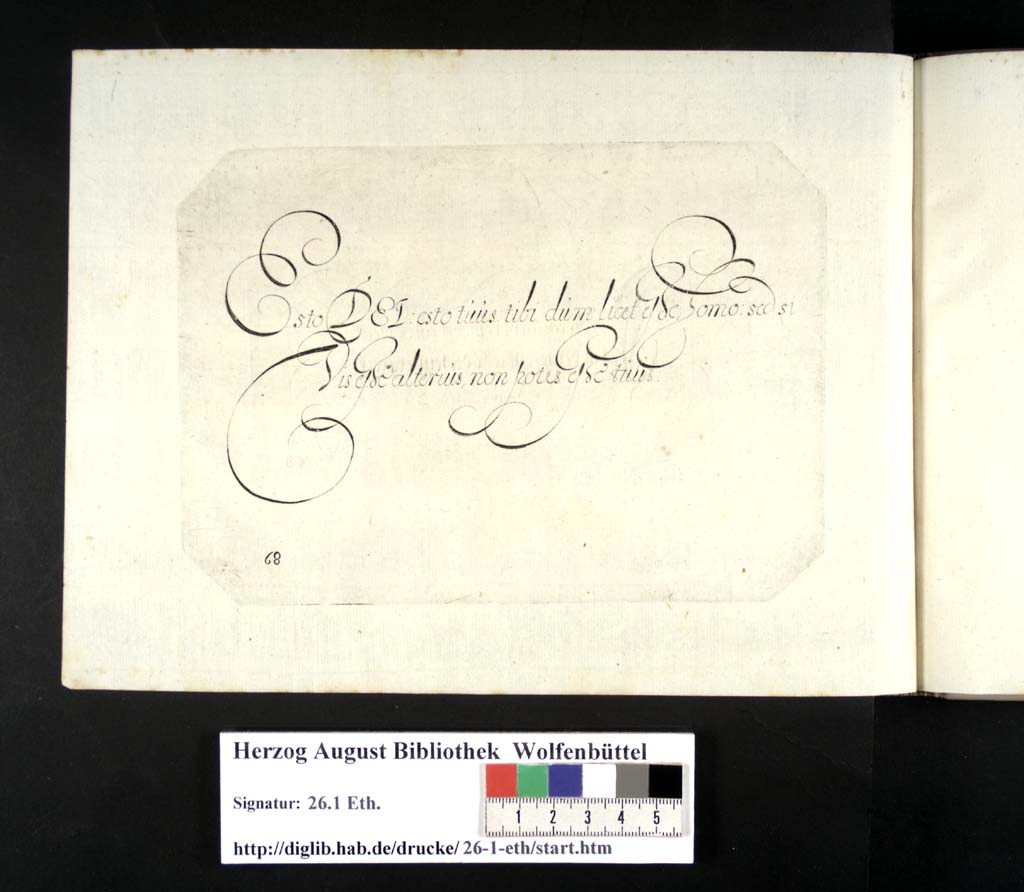 Esto DEI: esto tuus tibi dum licet esse, homo: sed si
Vis esse alterius, non potes esse tuus.
68
Herzog August Bibliothek Wolfenbüttel
Signatur: 26.1 Eth.
1 2 3 4 5
http://diglib.hab.de/drucke/26-1-eth/start.htm